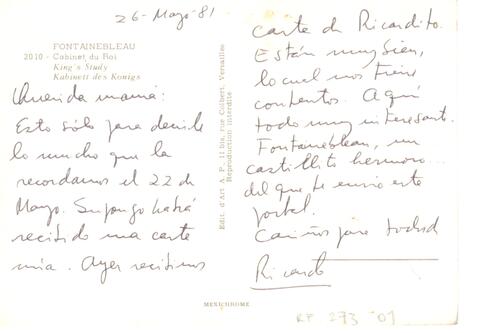 26-Mayo-81
FONTAINEBLEAU
2010 - Cabinet du Roi
King's Study
Kabinett des Konigs
Querida mamá:
Esto sólo para decirle
lo mucho que la
recordamos el 22 de
Mayo. Supongo habrá
recibido una carta
mía. Ayer recibimos
Edit. d'Art A. P. 11 bis, rue Colbert, Versailles
Reproduction interdite
carta de Ricardito.
Están muy bien,
lo cual nos tiene
contentos. Aquí
todo muy interesante.
Fontainebleau, un
castillito hermoso...
del que te envío este
postal.
Cariños para todos
Ricardo
MEXICHROME
RP 273 '01